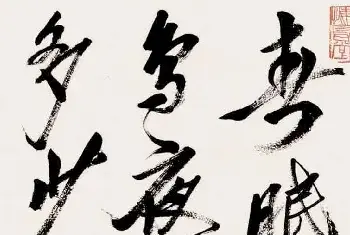 春眠
鳥夜
多少